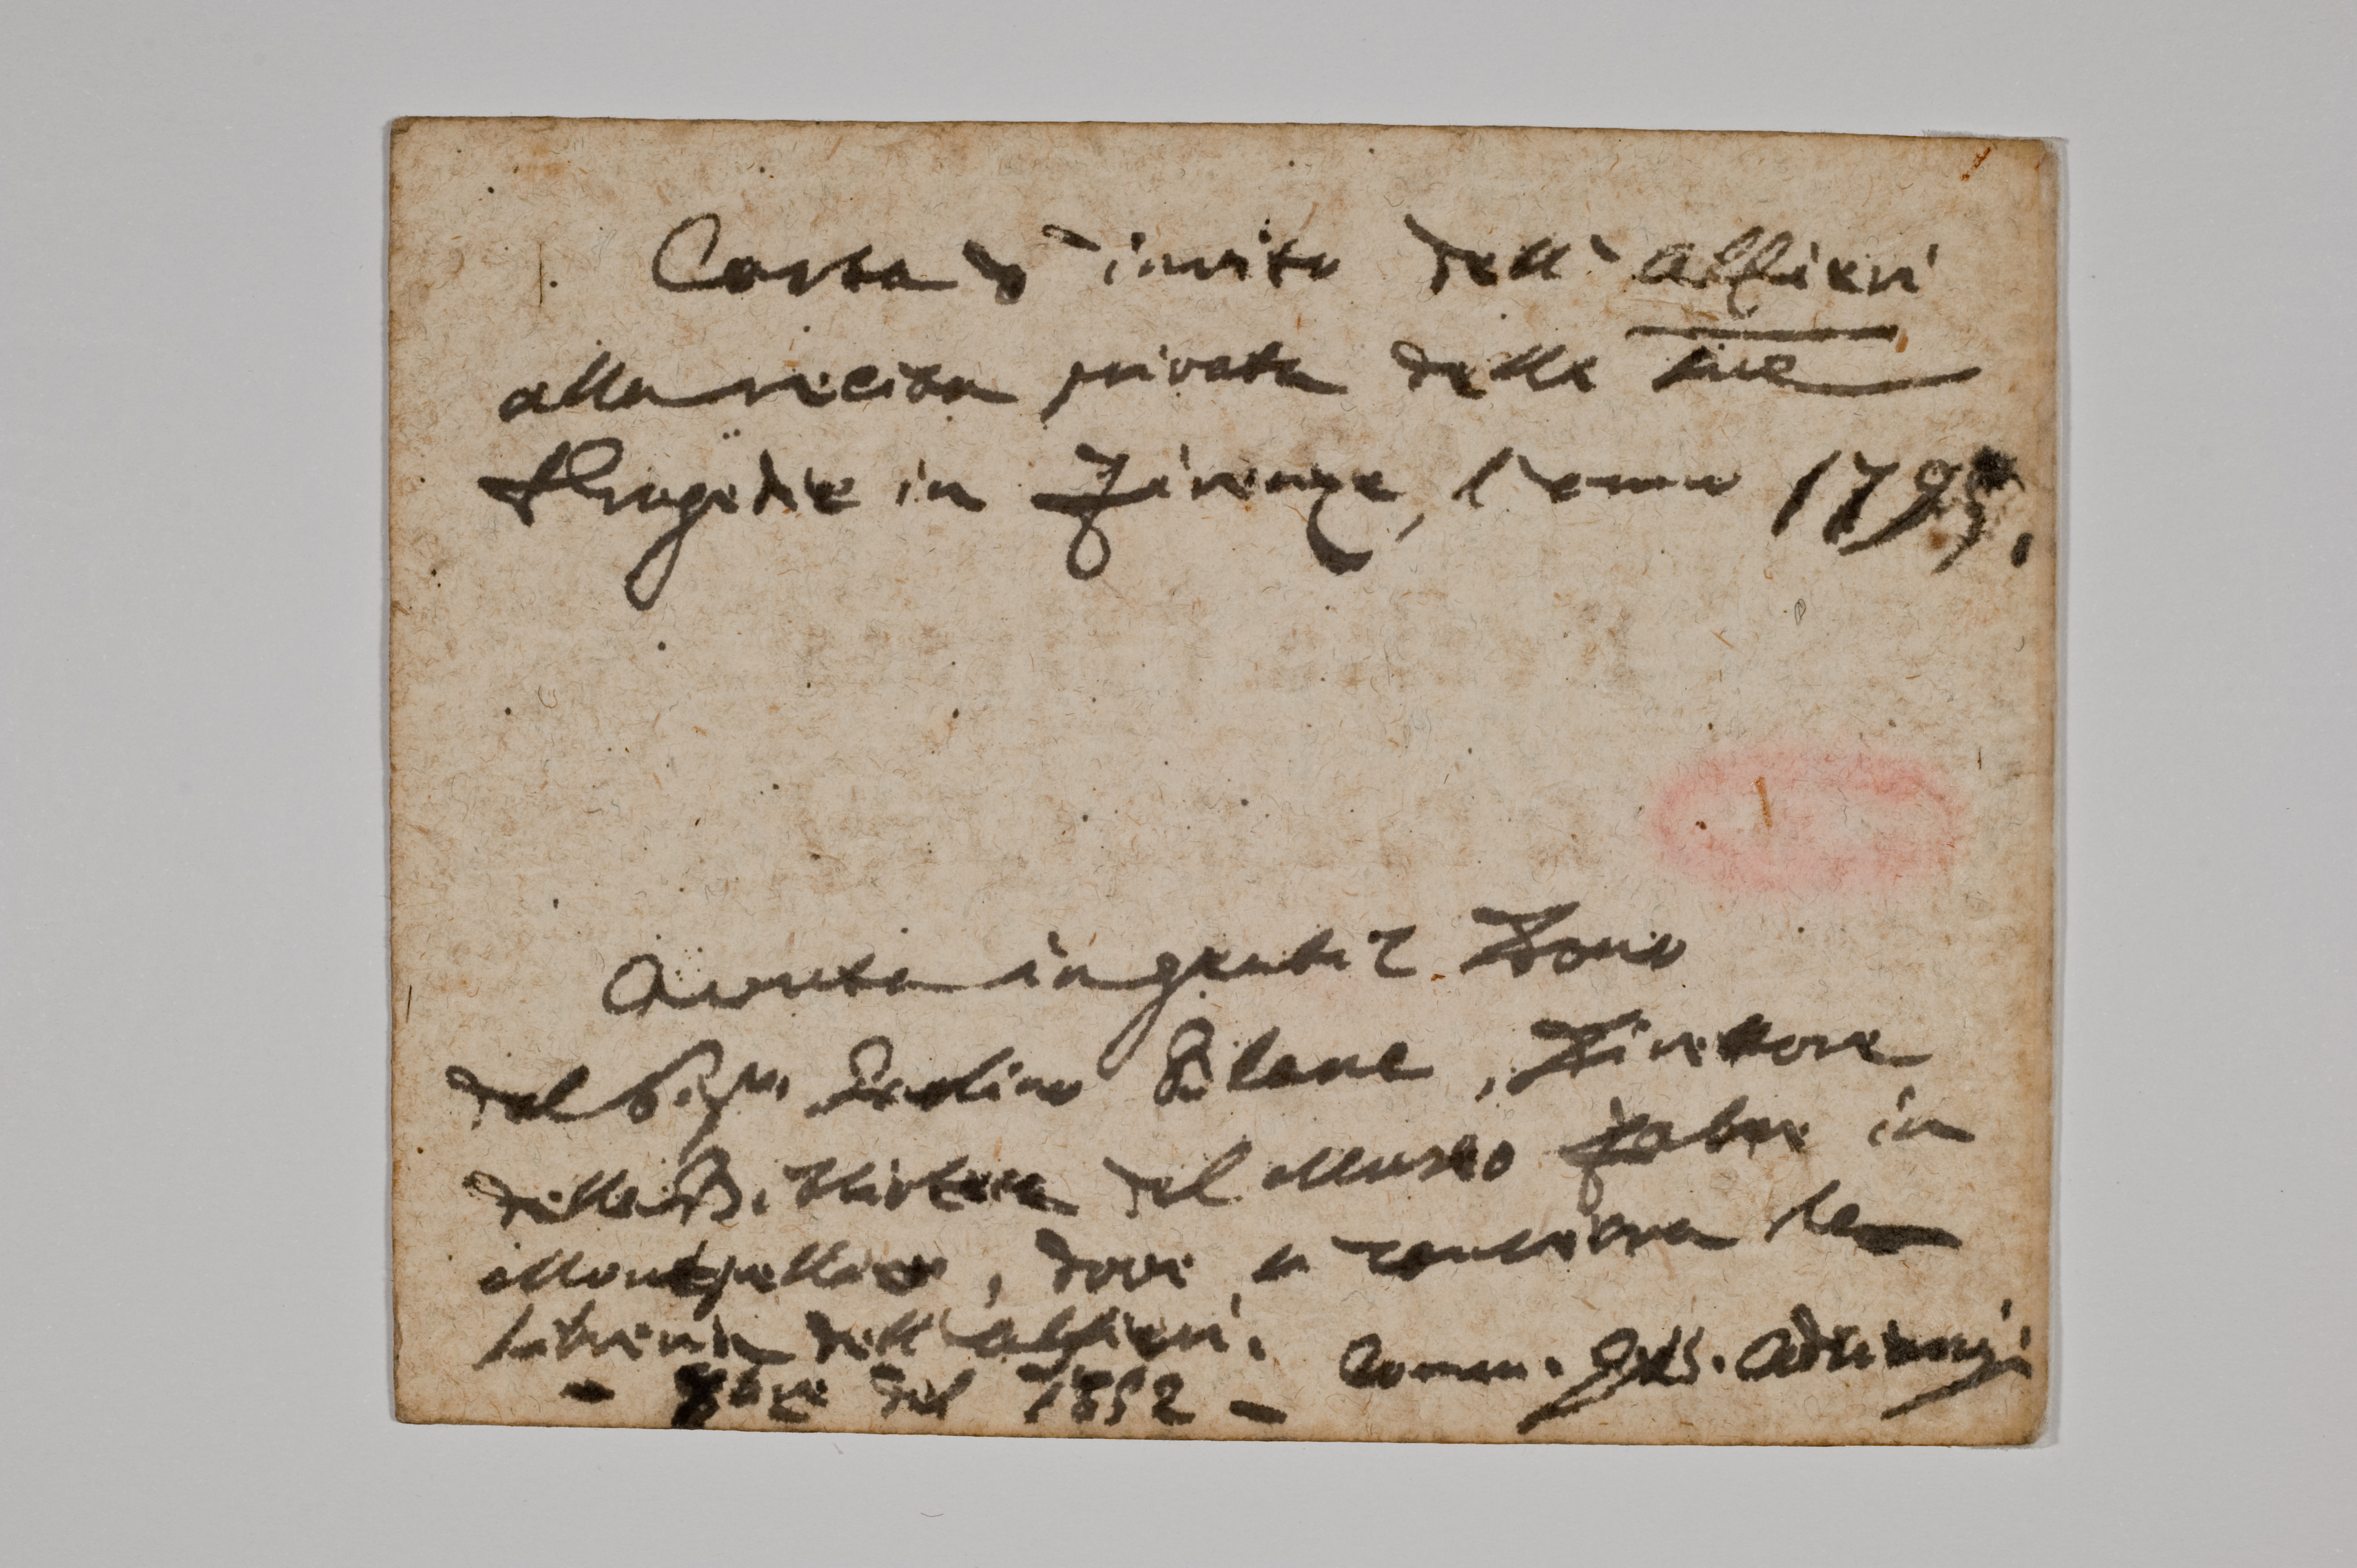 Carta d'invito dell'Alfieri
alla recita privata delle sue
tragedie in Firenze, l'anno 1795.
Avuta in gentil Dono
dal Sigr. Paolino Blanc, Direttore
della Biblioteca del Museo Fabre in
Montpellier, dove si conserva la
libreria dell'Alfieri.
- 8bre del 1852 -
Comm. Gio. Adriani